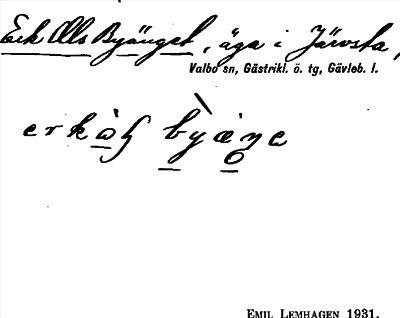 Erk Ols Byänget, äga i Järvsta,
Valbo sn, Gästrikl. ö. tg, Gävleb. l.
EMIL LEMHAGEN 1931.